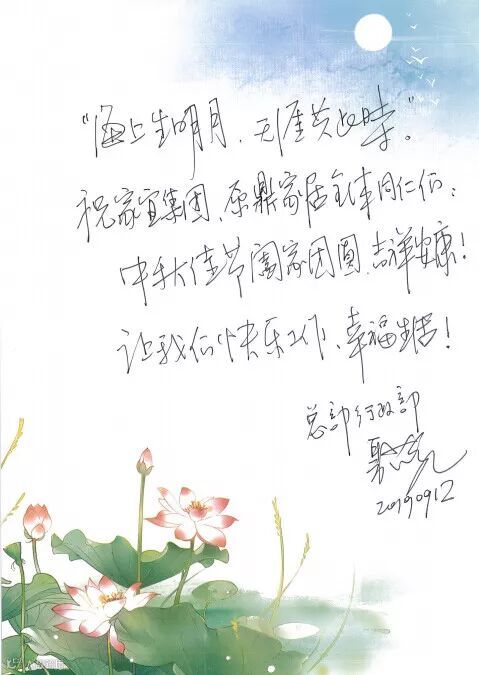 “海上生明月，天涯共此时。”
祝家宜集团、原鼎家居全体同仁们：
中秋佳节阖家团圆，吉祥安康！
让我们快乐工作、幸福生活！
总部行政部
20190912